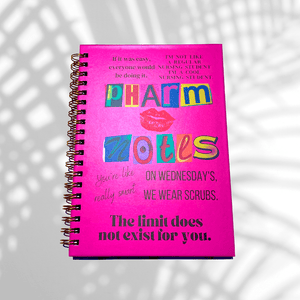 If it was easy,
everyone would
be doing it.
I'M NOT LIKE
A REGULAR
NURSING STUDENT
I'M A COOL
NURSING STUDENT
PHARM
NOTES
You're like
really smart.
ON WEDNESDAY'S,
WE WEAR SCRUBS.
The limit does
not exist for you.